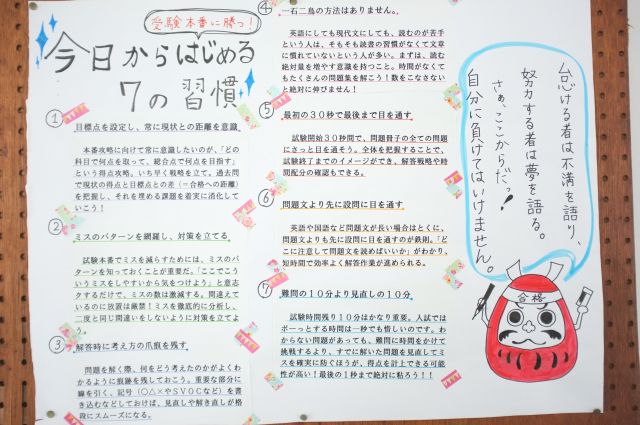 受験本番に勝つ!
今日からはじめる
7の習慣
①
目標点を設定し、常に現状との距離を意識
本番攻略に向けて常に意識したいのが、「どの
科目で何点を取って、総合点で何点を目指す」
という得点攻略。いち早く戦略を立て、過去問
で現状の得点と目標点との差(=合格への距離)
を把握し、それを埋める課題を着実に消化して
いこう!
②
ミスのパターンを網羅し、対策を立てる
試験本番でミスを減らすためには、ミスのパ
ターンを知っておくことが重要だ。「ここでこう
いうミスをしやすいから気をつけよう」と意志
クするだけで、ミスの数は激減する。間違えて
いるのに放置は厳禁!ミスを徹底的に分析し、
二度と同じ間違いをしないように対策を立てよ
う。
③
解答時に考え方の爪痕を残す
問題を解く際、何をどう考えたのかがよくわ
かるように痕跡を残しておこう。重要な部分に
線を引く、記号(○△×やSVOCなど)を書
き込むなどしておけば、見直しや解き直しが格
段にスムーズになる。
④
一石二鳥の方法はありません。
英語にしても現代文にしても、読むのが苦手
という人は、そもそも読書の習慣がなくて文章
に慣れていないという人が多い。まずは、読む
絶対量を増やす意識を持つこと。時間がなくて
もたくさんの問題集を解こう!数をこなさない
と絶対に伸びません!
⑤
最初の30秒で最後まで目を通す
試験開始30秒間で、問題冊子の全ての問題
にさっと目を通そう。全体を把握することで、
試験終了までのイメージができ、解答戦略や時
間配分の確認もできる。
⑥
問題文より先に設問に目を通す
英語や国語など問題文が長い場合はとくに、
問題文よりも先に設問に目を通すのが鉄則。「ど
こに注意して問題文を読めばいいか」がわかり、
短時間で効率よく解答作業が進められる。
⑦
難問の10分より見直しの10分
試験時間残り10分はかなり重要。入試では
ボーっとする時間は一秒でも惜しいのです。わ
からない問題があっても、難問に時間をかけて
挑戦するより、すでに解いた問題を見直してミ
スを確実に防ぐほうが、得点を計上できる可能
性が高い!最後の1秒まで絶対に粘ろう!!
怠ける者は不満を語り、
努力する者は夢を語る。
さぁ、ここからだっ!
自分に負けてはいけません。
合格